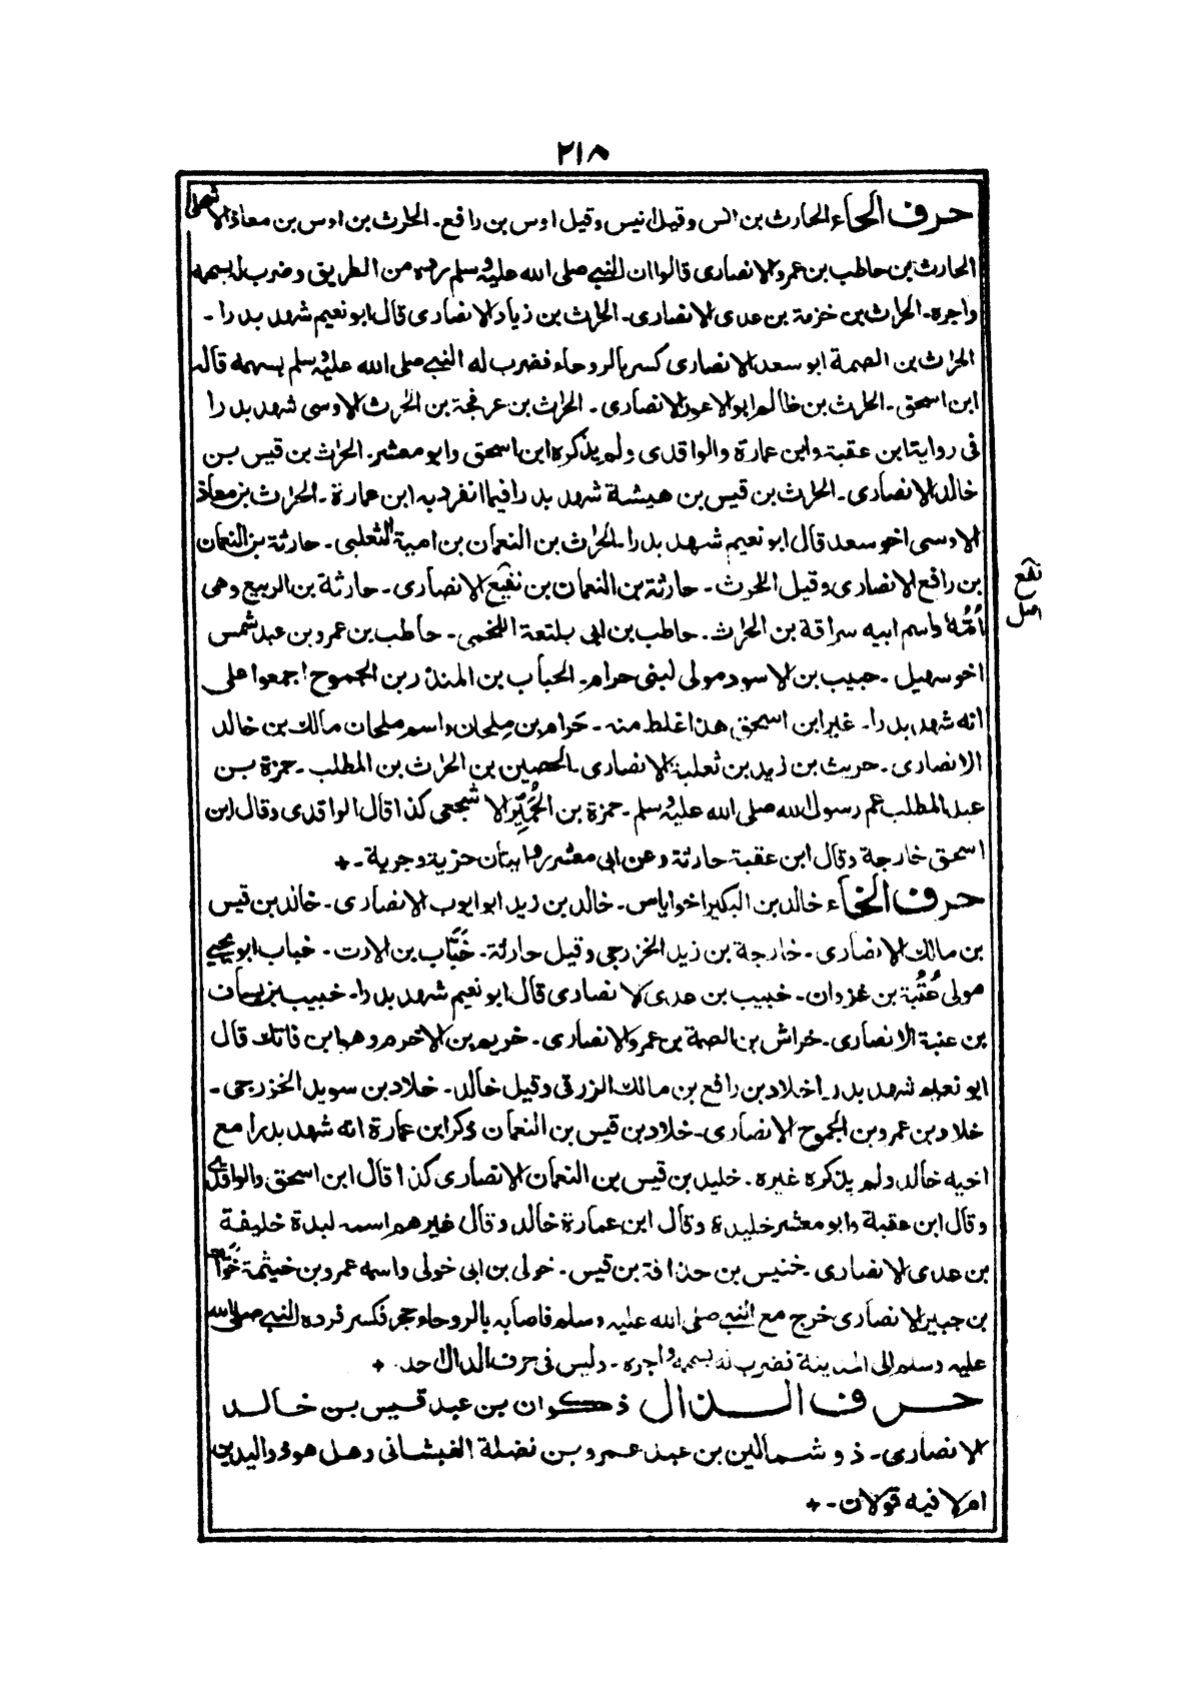 ٢١٨
حرف الحاء الحارث بن انس وقيل انيس وقيل اوس بن رافع ـ الحارث بن اوس بن معاذ الاشهلی
الحارث بن حاطب بن عمرو الانصاری قالوا ان النبي صلی الله عليه وسلم رده من الطريق وضرب له بسهمه
واجره ـ الحارث بن خزمة بن عدی الانصاری ـ الحارث بن زياد الانصاری قال ابو نعيم شهد بدرا ـ
الحارث بن الصمة ابو سعد الانصاری کسر بالروحاء فضرب له النبي صلی الله عليه وسلم بسهمه قاله
ابن اسحق ـ الحارث بن ظالم ابو الاعور الانصاری ـ الحارث بن عرفجة بن الحارث الاوسی شهد بدرا
فی رواية ابن عقبة وابن عمارة والواقدی ولم يذکره ابن اسحق وابو معشر ـ الحارث بن قيس بن
خالد الانصاری ـ الحارث بن قيس بن هيشة شهد بدرا فيما انفرد به ابن عمارة ـ الحارث بن معاذ
الاوسی اخو سعد قال ابو نعيم شهد بدرا ـ الحارث بن النعمان بن امية الثعلبی ـ حارثة بن النعمان
بن رافع الانصاری وقيل الحرث ـ حارثة بن النعمان بن نقيع الانصاری ـ حارثة بن الربيع وهی
نقع
اصل
اُمُّهُ واسم ابيه سراقة بن الحارث ـ حاطب بن ابی بلتعة اللخمی ـ حاطب بن عمرو بن عبد شمس
اخو سهيل ـ حبيب بن الاسود مولی لبنی حرام ـ الحباب بن المنذر بن الجموح اجمعوا علی
انه شهد بدرا ـ غير ابن اسحق هذا غلط منه ـ حَرام بن مِلحان واسم ملحان مالك بن خالد
الانصاری ـ حريث بن زيد بن ثعلبة الانصاری ـ الحصين بن الحارث بن المطلب ـ حمزة بن
عبد المطلب عم رسول الله صلی الله عليه وسلم ـ حمزة بن الحُمَيِّر الاشجعی کذا قال الواقدی وقال ابن
اسحق خارجة وقال ابن عقبة حارثة وعن ابی معشر روايتان حزية وجرية ـ +
حرف الخاء خالد بن البکير اخو اياس ـ خالد بن زيد ابو ايوب الانصاری ـ خالد بن قيس
بن مالك الانصاری ـ خارجة بن زيد الخزرجی وقيل حارثة ـ خَبَّاب بن الارت ـ خباب ابو يحيی
مولی عُتْبة بن غزوان ـ خبيب بن عدی الانصاری قال ابو نعيم شهد بدرا ـ خبيب بن يساف
بن عنبة الانصاری ـ خراش بن الصمة بن عمرو الانصاری ـ خريم بن الاخرم وهو ابن فاتك قال
ابو نعيم شهد بدرا ـ خلاد بن رافع بن مالك الزرقی وقيل خالد ـ خلاد بن سويد الخزرجی ـ
خلاد بن عمرو بن الجموح الانصاری ـ خلاد بن قيس بن النعمان ذکر ابن عمارة انه شهد بدرا مع
اخيه خالد ولم يذکره غيره ـ خليد بن قيس بن النعمان الانصاری کذا قال ابن اسحق والواقدی
وقال ابن عقبة وابو معشر خليدة وقال ابن عمارة خالد وقال غيرهم اسمه لبدة خليفة
بن عدی الانصاری ـ خنيس بن حذافة بن قيس ـ خولی بن ابی خولی واسمه عمرو بن خيثمة خوّات
بن جبير الانصاری خرج مع النبي صلی الله عليه وسلم فاصابه بالروحاء حجر فکسر فرده النبي صلی الله
عليه وسلم الی المدينة فضرب له بسهمه واجره ـ وليس فی حرف الدال احد ـ +
حرف الذال ذکوان بن عبد قيس بن خالد
الانصاری ـ ذو شمالين بن عبد عمرو بن نضلة الغبشانی وهل هو ذو اليدين
ام لا فيه قولان ـ +